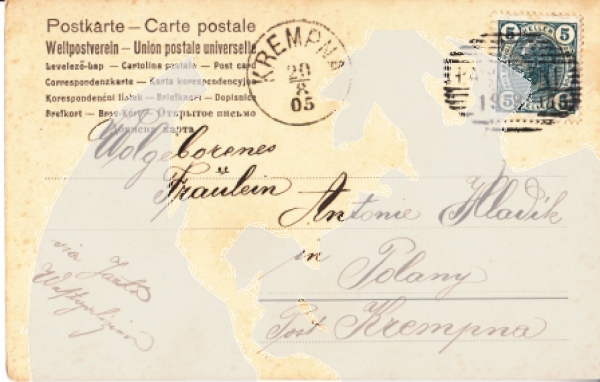 Postkarte — Carte postale
Weltpostverein — Union postale universelle
Levelező-lap — Cartolina postale — Post card
Correspondenzkarte — Karta korespondencyjna
Korespondenční lístek — Briefkaart — Dopisnica
Brefkort — Brev-Kort — Открытое письмо
карта
KREMPNA
20
8
05
5 HELLER 5
5 5
19
Wolgeborenes
Fräulein
Antonie Hladik
in
Polany
Post Krempna
via Jasło